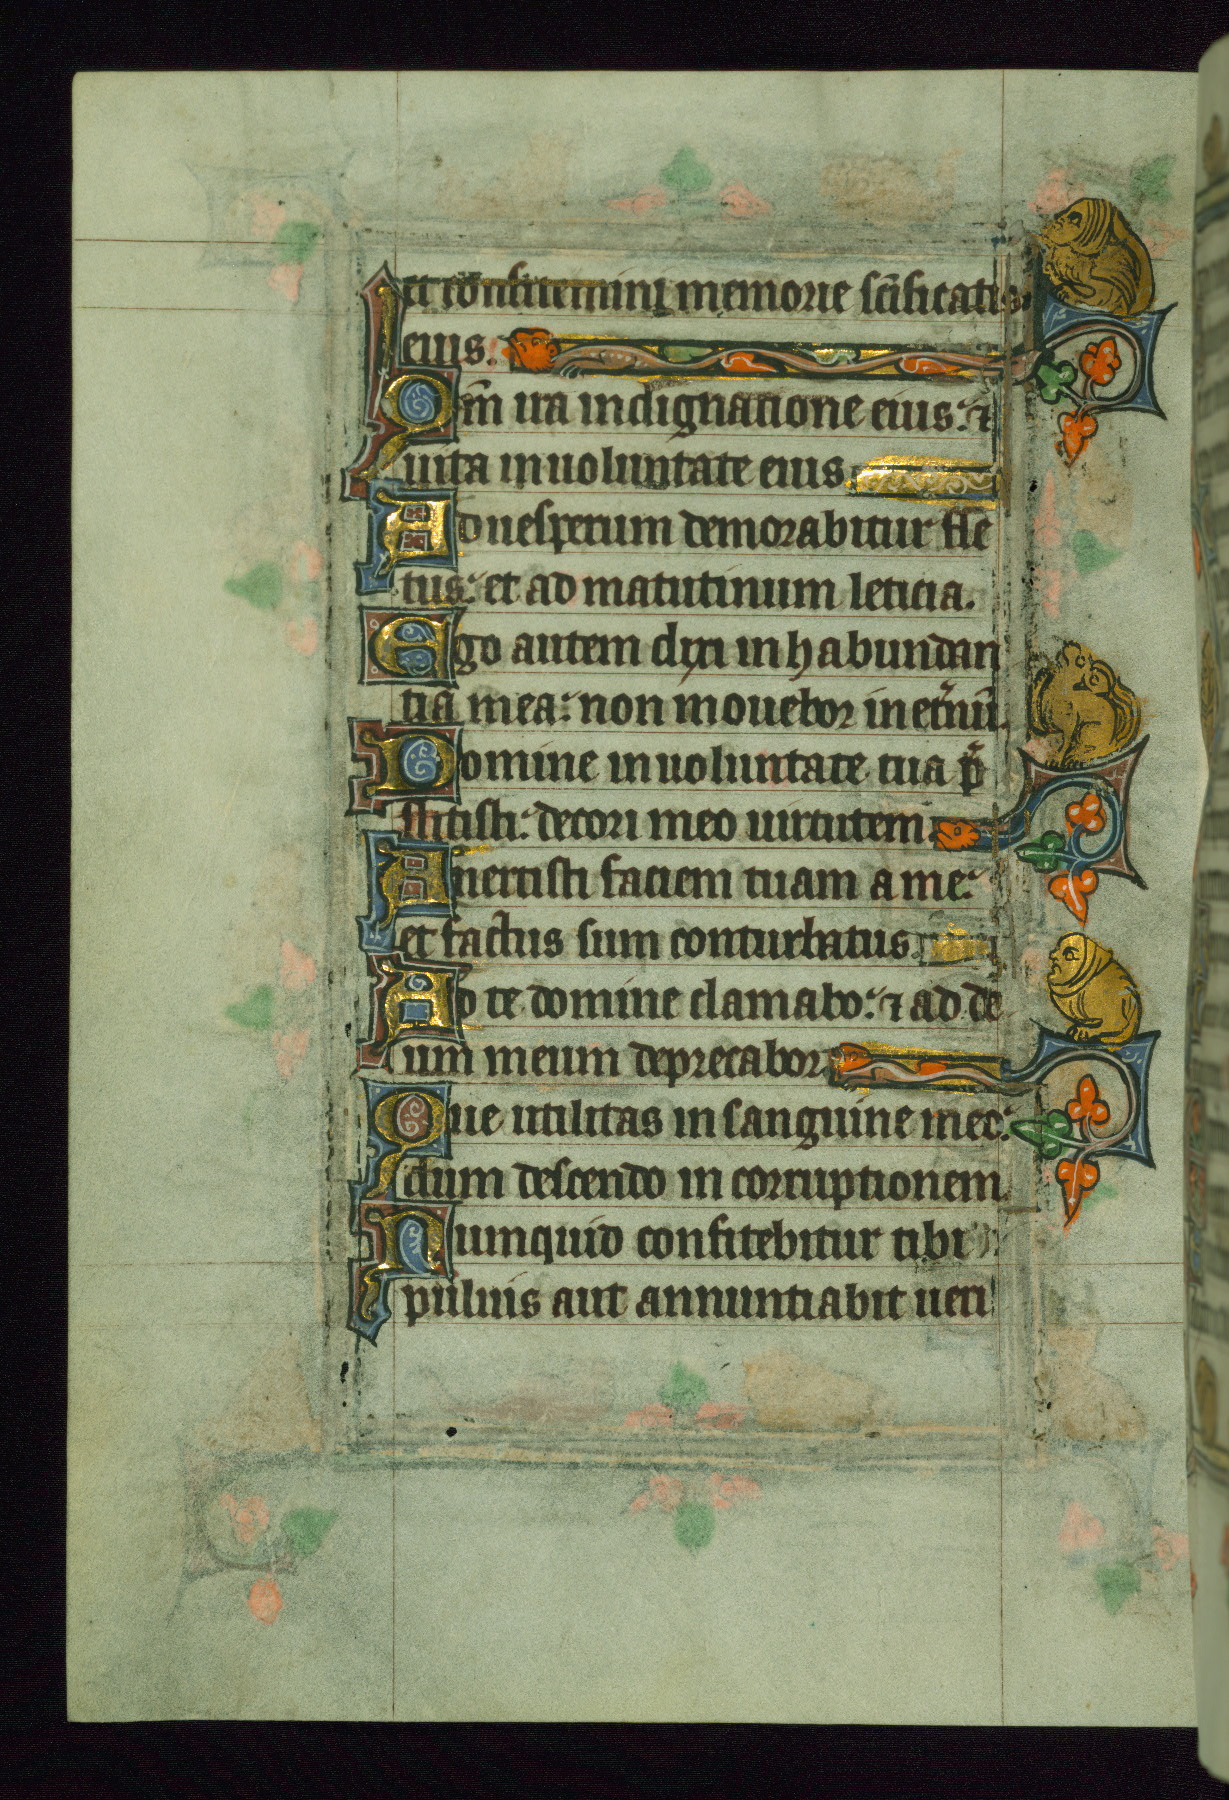 et confitemini memorie sc̄ificatis
eius.
Qm̄ ira in dignatione eius: ⁊
uita in uoluntate eius
Ad uesperum demorabitur fle
tus: et ad matutinum leticia.
Ego autem dixi in habundan
tia mea: non mouebor in et̄nū
Domine in uoluntate tua p̄
stitisti: decori meo uirtutem
Auertisti faciem tuam a me:
et factus sum conturbatus
Ad te domine clamabo: ⁊ ad de
um meum deprecabor
Que utilitas in sanguine meo:
dum descendo in corruptionem
Numquid confitebitur tibi
puluis aut annuntiabit ueri